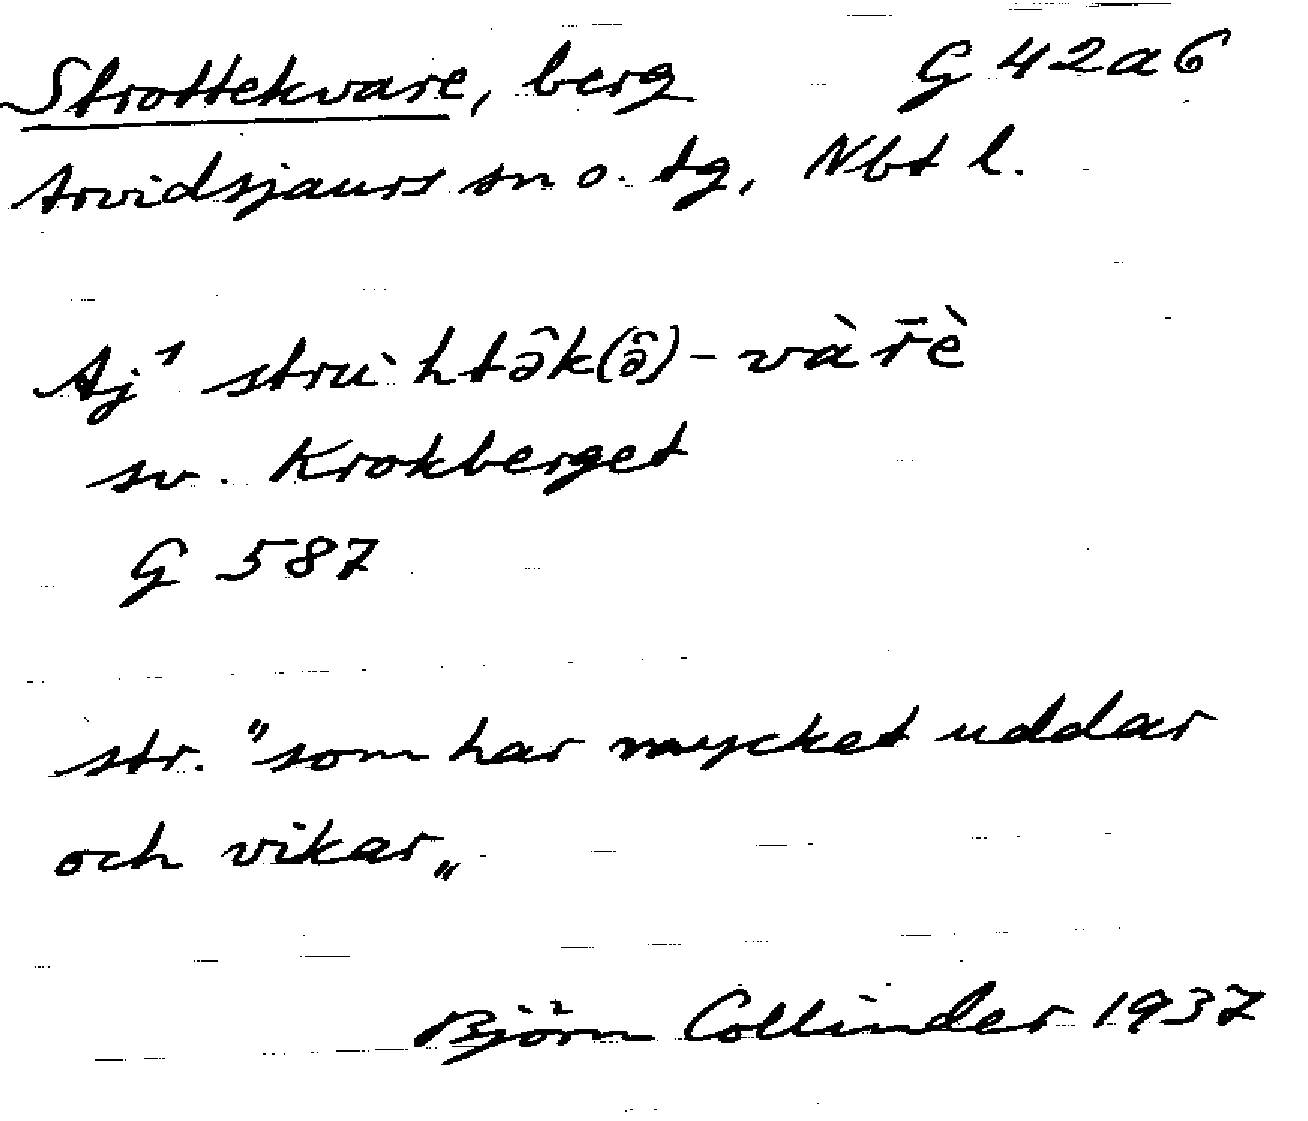 Strottekvare, berg G 42a6
Arvidsjaurs sn o. tg, Nbt l.
Aj¹ strù htə̂k(ə̂)-vàr̄è
sv. Krokberget
G 587
str. "som har mycket uddar
och vikar„
Björn Collinder 1937